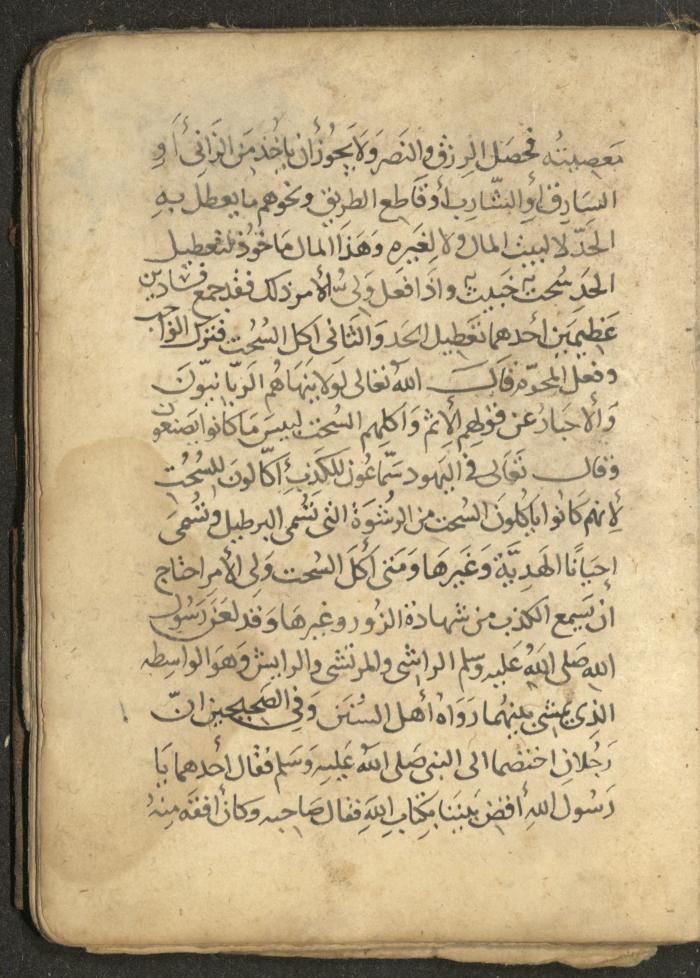 معصيته فحصل الرزق والنصر وَلاَ يجوز أن ياخذ من الزاني أو
السَارِق أو الشّارب أو قاطع الطريق ونحوهم ما يعطل به
الحَدّ لا لبيت المال ولا لغيره وَهَذا المال مَاخُوذ لتعطيل
الحَدِ سُحت خَبيث واذا فعل وَلي الأمر ذلك فقد جمع فسادين
عَظيمَين أحدهما تَعطيل الحَد وَالثاني اكل السُحت فترك الواجب
وفعل المحرّم قَالَ الله تعالى لَولا ينهَاهُم الرَبّانيّونَ
وَالأحبَارُ عن قولهم الإثم وَاكلهم السُحت لبيس مَا كانوا يصنعون
وقال تَعَالى في اليَهود سَمّاعُون للكَذِبِ أكّالونَ للسُحْتِ
لأنهم كَانوا ياكلونَ السُحت من الرشوَة التي تسُمى البرطيل وَتسُمى
احيَانًا الهَديَّة وَغَيرهَا وَمَتى أكَلَ السُحت وَلي الأمر احتاج
أن يَسمع الكذب من شهادة الزور وغيرهَا وَقد لعَنَ رَسُول
الله صَلى اللهُ عَليه وَسَلم الراشي والمرتشي والرايش وَهوَ الواسِطه
الذي يمشي بينهُما رَوَاهُ أهل السُنَن وَفي الصَحيحَين انّ
رَجُلان اختصَما الى النبي صَلى اللهُ عَليهِ وَسَلم فقال أحدهما يَا
رَسُول اللهِ أقض بَيننَا بكِتَابِ اللهِ فقال صَاحبه وكانَ أفقه منهُ